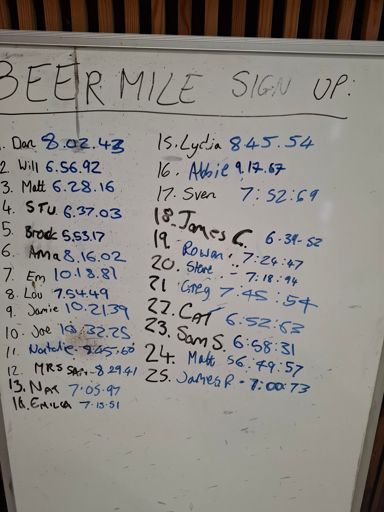 BEER MILE SIGN UP:
1. Dan 8.02.43
2 Will 6.56.92
3. Matt 6.28.16
4. STU 6.37.03
5. Brock 5.53.17
6. Anna 8,16.02
7. Em 10.18.81
8. Lou 7.54.49
9. Jamie 10.21.39
10. Joe
11. Natalie 8.45.60
12. MRS 8.29.41
13. NAT 7.05.97
14. EMILIA 7.15.51
15. Lydia 8 45.54
16. Abbie 9.17.67
17. Sven 7:52:69
18. James C. 6:39-52
19. Rowan 7:24:47
20. Steve 7:18:94
21 Greg 7:45:54
22. CAT 6:52:63
23. Sam S 6:58:31
24. Matt S 6:49:57
25. James P - 7:00:73